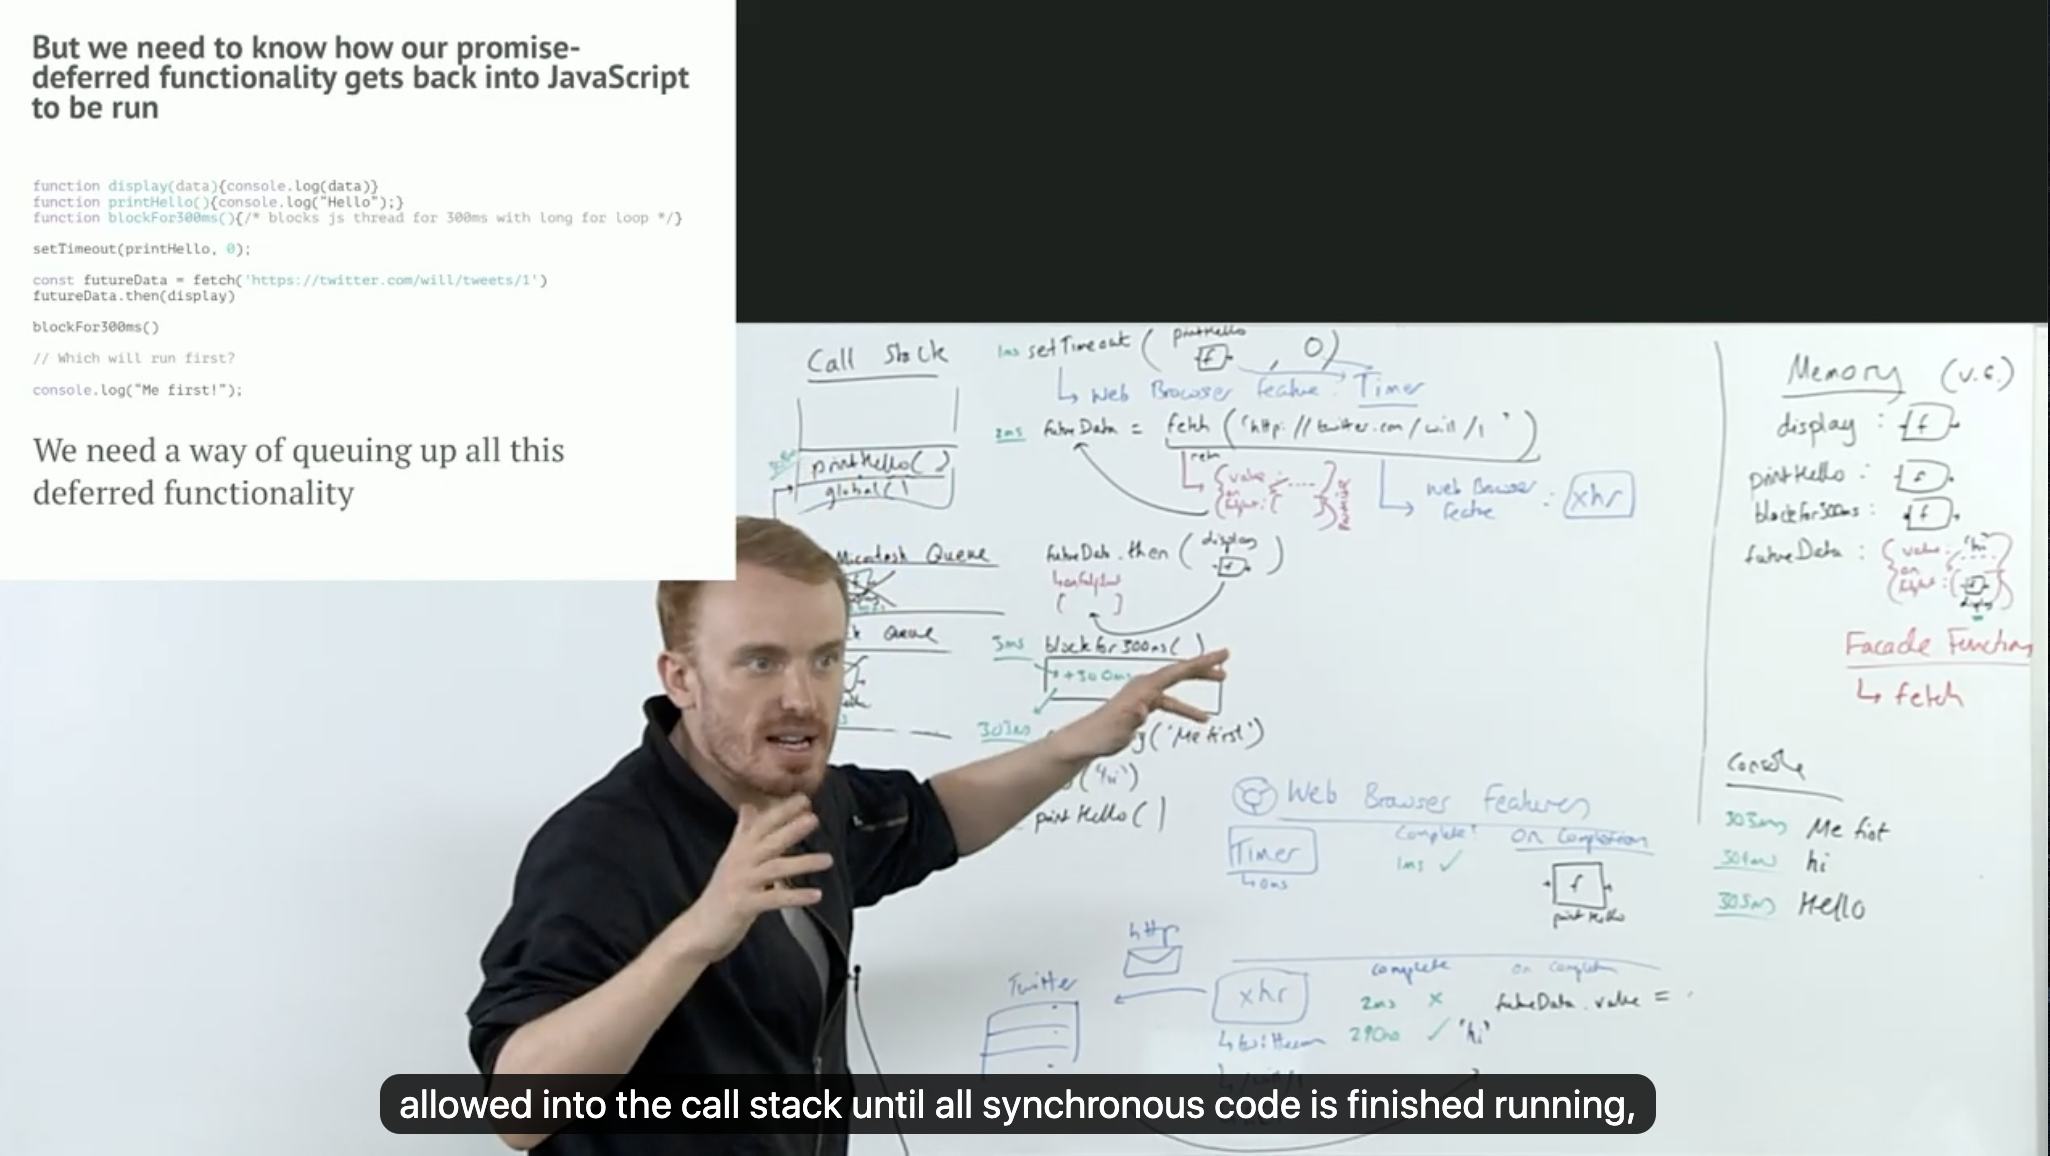 But we need to know how our promise-
deferred functionality gets back into JavaScript
to be run
function display(data){console.log(data)}
function printHello(){console.log("Hello");}
function blockFor300ms(){/* blocks js thread for 300ms with long for loop */}
setTimeout(printHello, 0);
const futureData = fetch('https://twitter.com/will/tweets/1')
futureData.then(display)
blockFor300ms()
// Which will run first?
console.log("Me first!");
We need a way of queuing up all this
deferred functionality
Call Stack
printHello()
global()
Microtask Queue
Queue
1ms setTimeout ( printHello f , 0)
↳ Web Browser Feature : Timer
2ms futureData = fetch ('http://twitter.com/will/1')
↳ Web Browser Feature : xhr
futureData.then ( display f )
3ms blockfor300ms( )
+300ms
303ms ('Me first')
("hi")
printHello( )
Web Browser Features
Timer Complete? On Completion
↳ 0ms 1ms ✓ f
printHello
http
Twitter
xhr complete on complet
2ms x futureData.value =
290ms ✓ 'hi'
Memory (v.e.)
display : f
printHello : f
blockfor300ms : f
futureData :
Facade Functions
↳ fetch
Console
303ms Me first
304ms hi
305ms Hello
allowed into the call stack until all synchronous code is finished running,